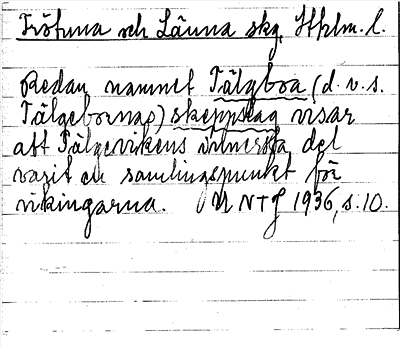 Frötuna och Länna skg Sthlm. l.
Redan namnet Tälgboa (d. v. s.
Tälgebornas) skeppslag visar
att Tälgevikens innersta del
varit en samlingspunkt för
vikingarna. UNTJ 1936, s. 10.